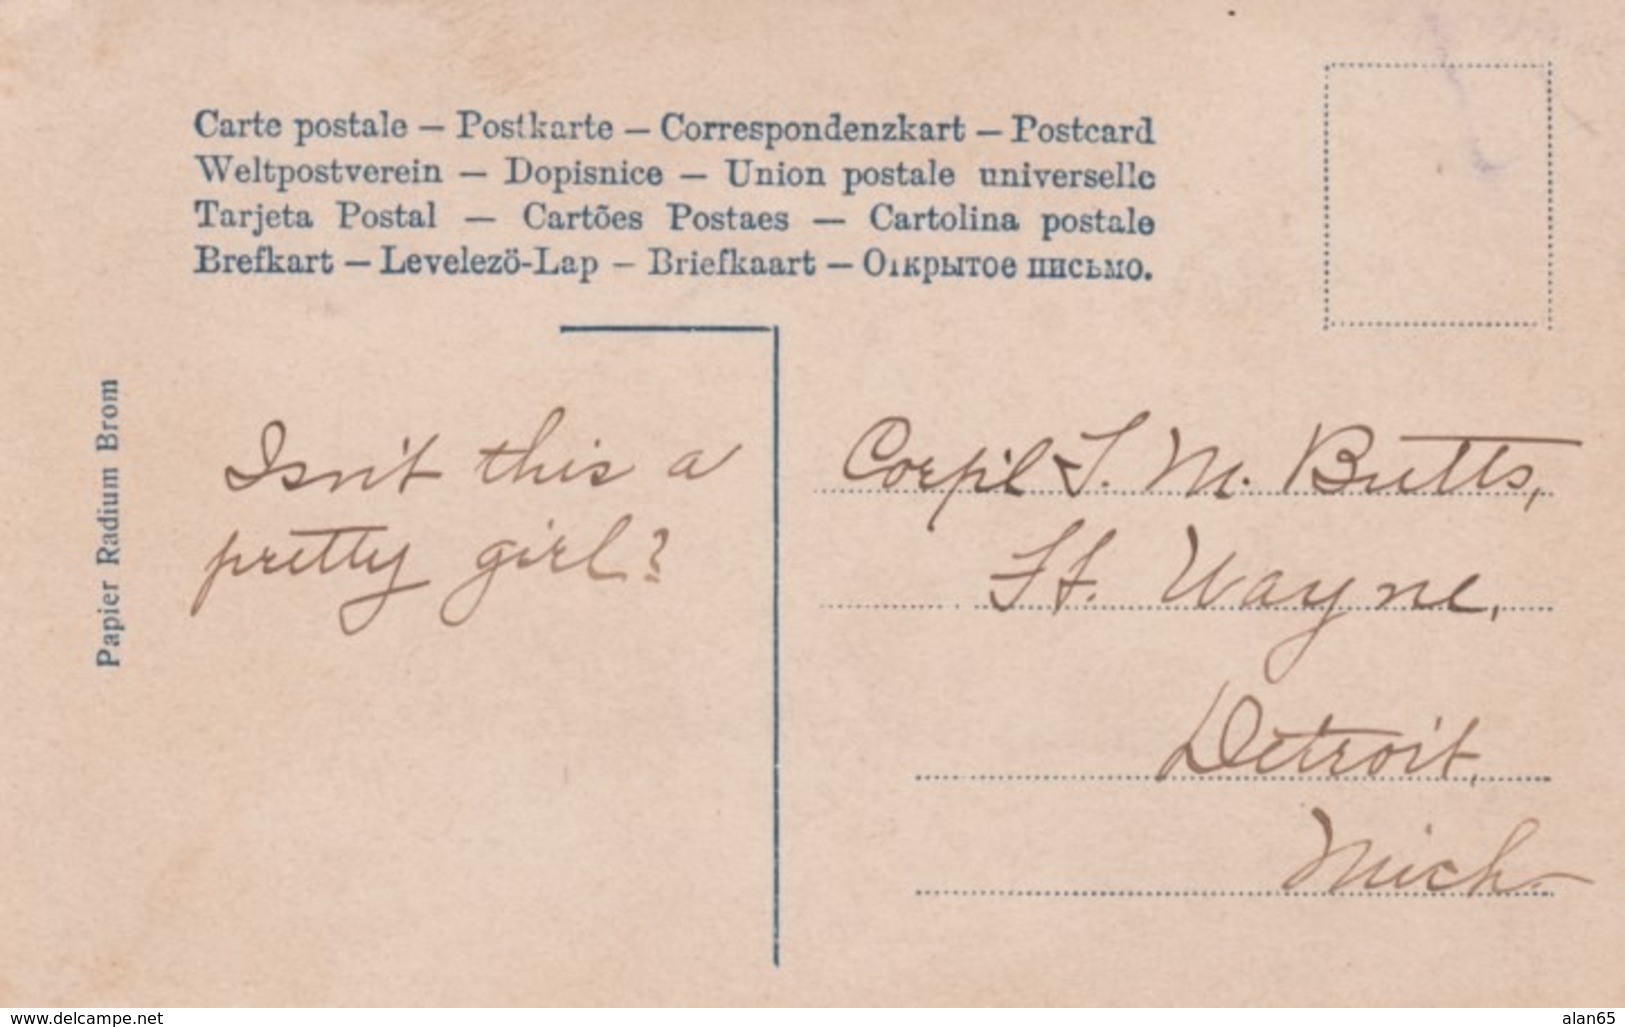 Carte postale – Postkarte – Correspondenzkart – Postcard
Weltpostverein – Dopisnice – Union postale universelle
Tarjeta Postal – Cartões Postaes – Cartolina postale
Brefkart – Levelezö-Lap – Briefkaart – Открытое письмо.
Papier Radium Brom
Isn't this a
pretty girl?
Corp'l M. Butts,
Ft. Wayne,
Detroit,
Mich.
www.delcampe.net
alan65